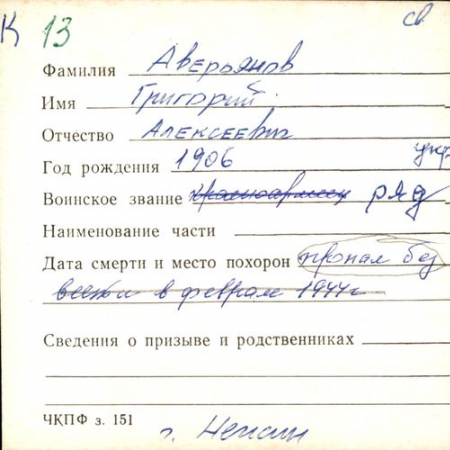 К 13 св
Фамилия Аверьянов
Имя Григорий
Отчество Алексеевич
Год рождения 1906 укр
Воинское звание красноармеец ряд
Наименование части
Дата смерти и место похорон пропал без
вести в феврале 1944г
Сведения о призыве и родственниках
ЧКПФ з. 151
г. Нежин